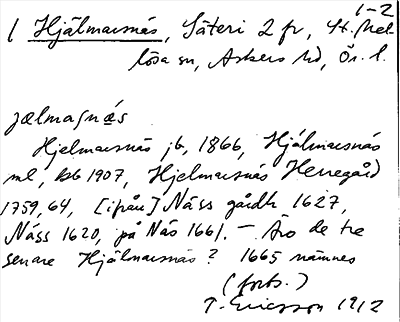 1-2
1 Hjälmarsnäs, Säteri 2 fr, St. Mel
lösa sn, Askers hd, Ör. l.
jælmaʃnæ̱s
Hjelmarsnäs jb, 1866, Hjälmarsnäs
ml, kb 1907, Hjelmarsnäs Herregård
1759, 64, [ifrån] Näss gårdh 1627,
Näss 1620, på Näs 1661. – Äro de tre
senare Hjälmarsnäs? 1665 nämnes
(forts.)
T. Ericsson 1912